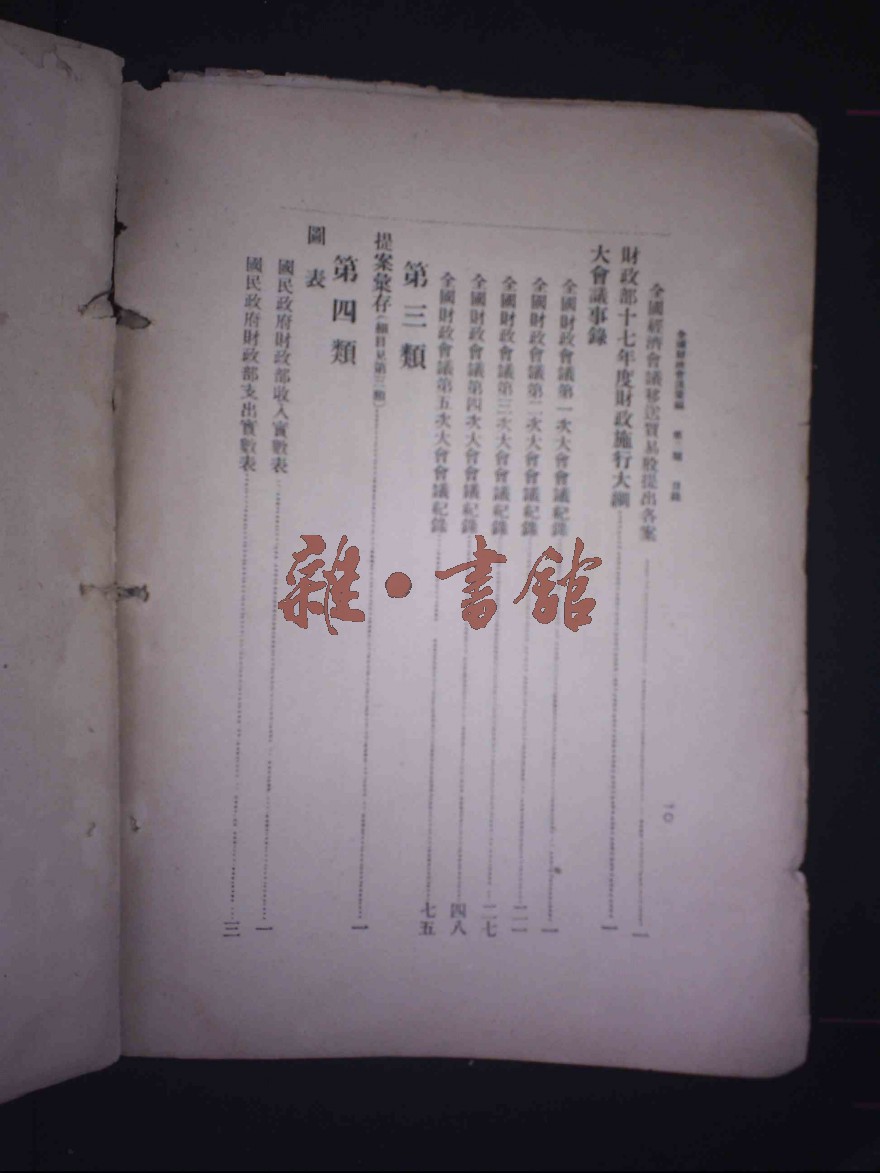 全國財政會議彙編　第二類　目錄
一〇
全國經濟會議移送貿易股提出各案……一
財政部十七年度財政施行大綱……一
大會議事錄
全國財政會議第一次大會會議紀錄……一
全國財政會議第二次大會會議紀錄……一一
全國財政會議第三次大會會議紀錄……二七
全國財政會議第四次大會會議紀錄……四八
全國財政會議第五次大會會議紀錄……七五
第三類
提案彙存(細目見第三類)……一
第四類
圖表
國民政府財政部收入實數表……一
國民政府財政部支出實數表……三
雜·書館